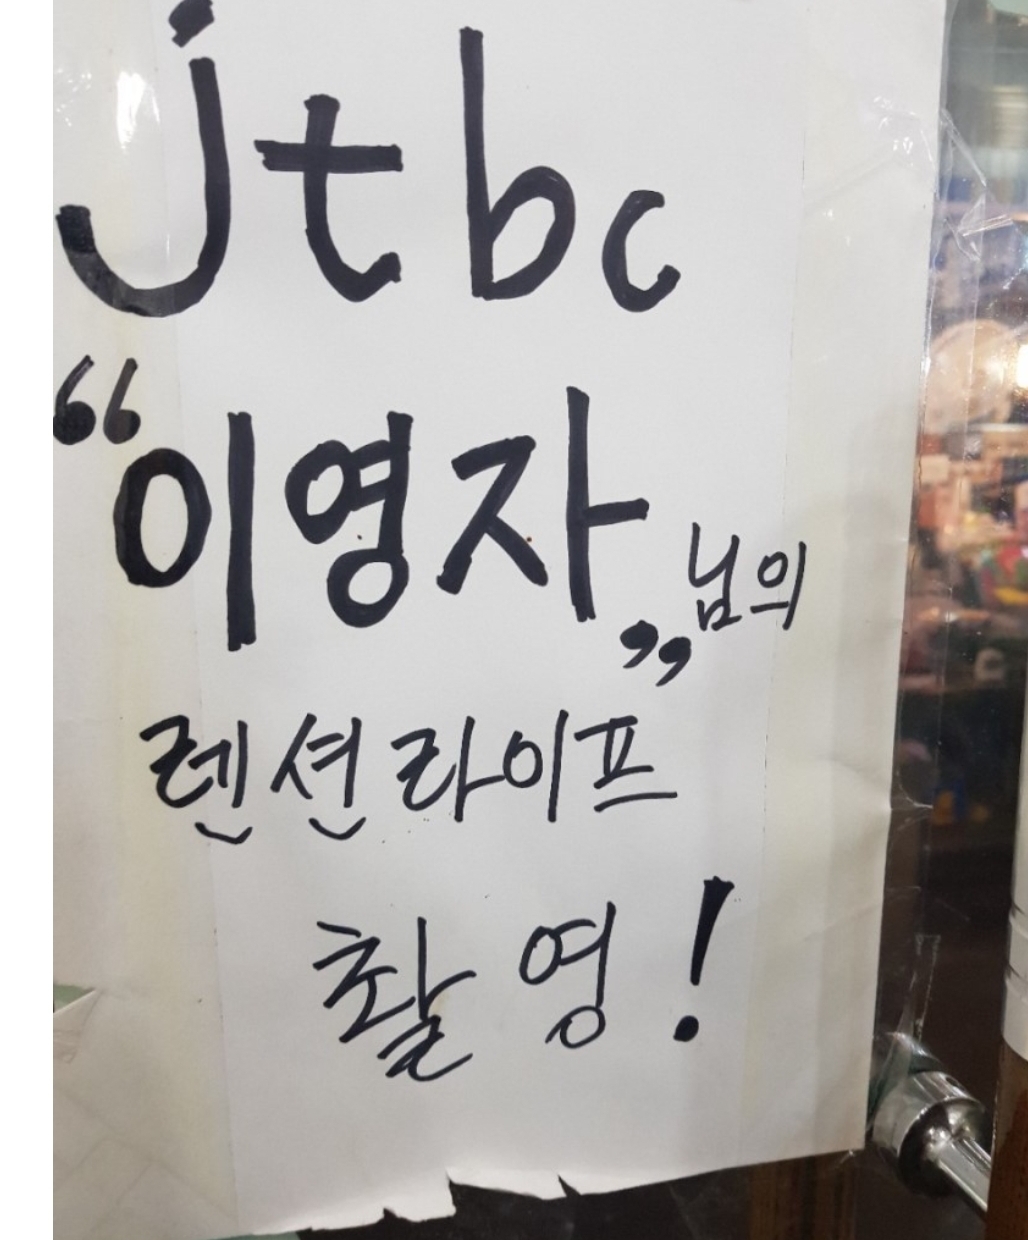 jtbc
“이영자„님의
렌션라이프
촬영!